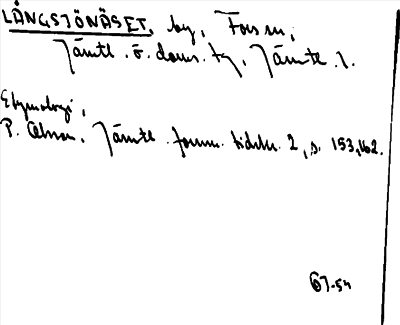 LÅNGSJÖNÄSET, by, Fors sn,
Jämtl. ö. doms. tg, Jämtl. l.
Etymologi,
P. Olsson, Jämtl. fornm. tidskr. 2, s. 153, 162.